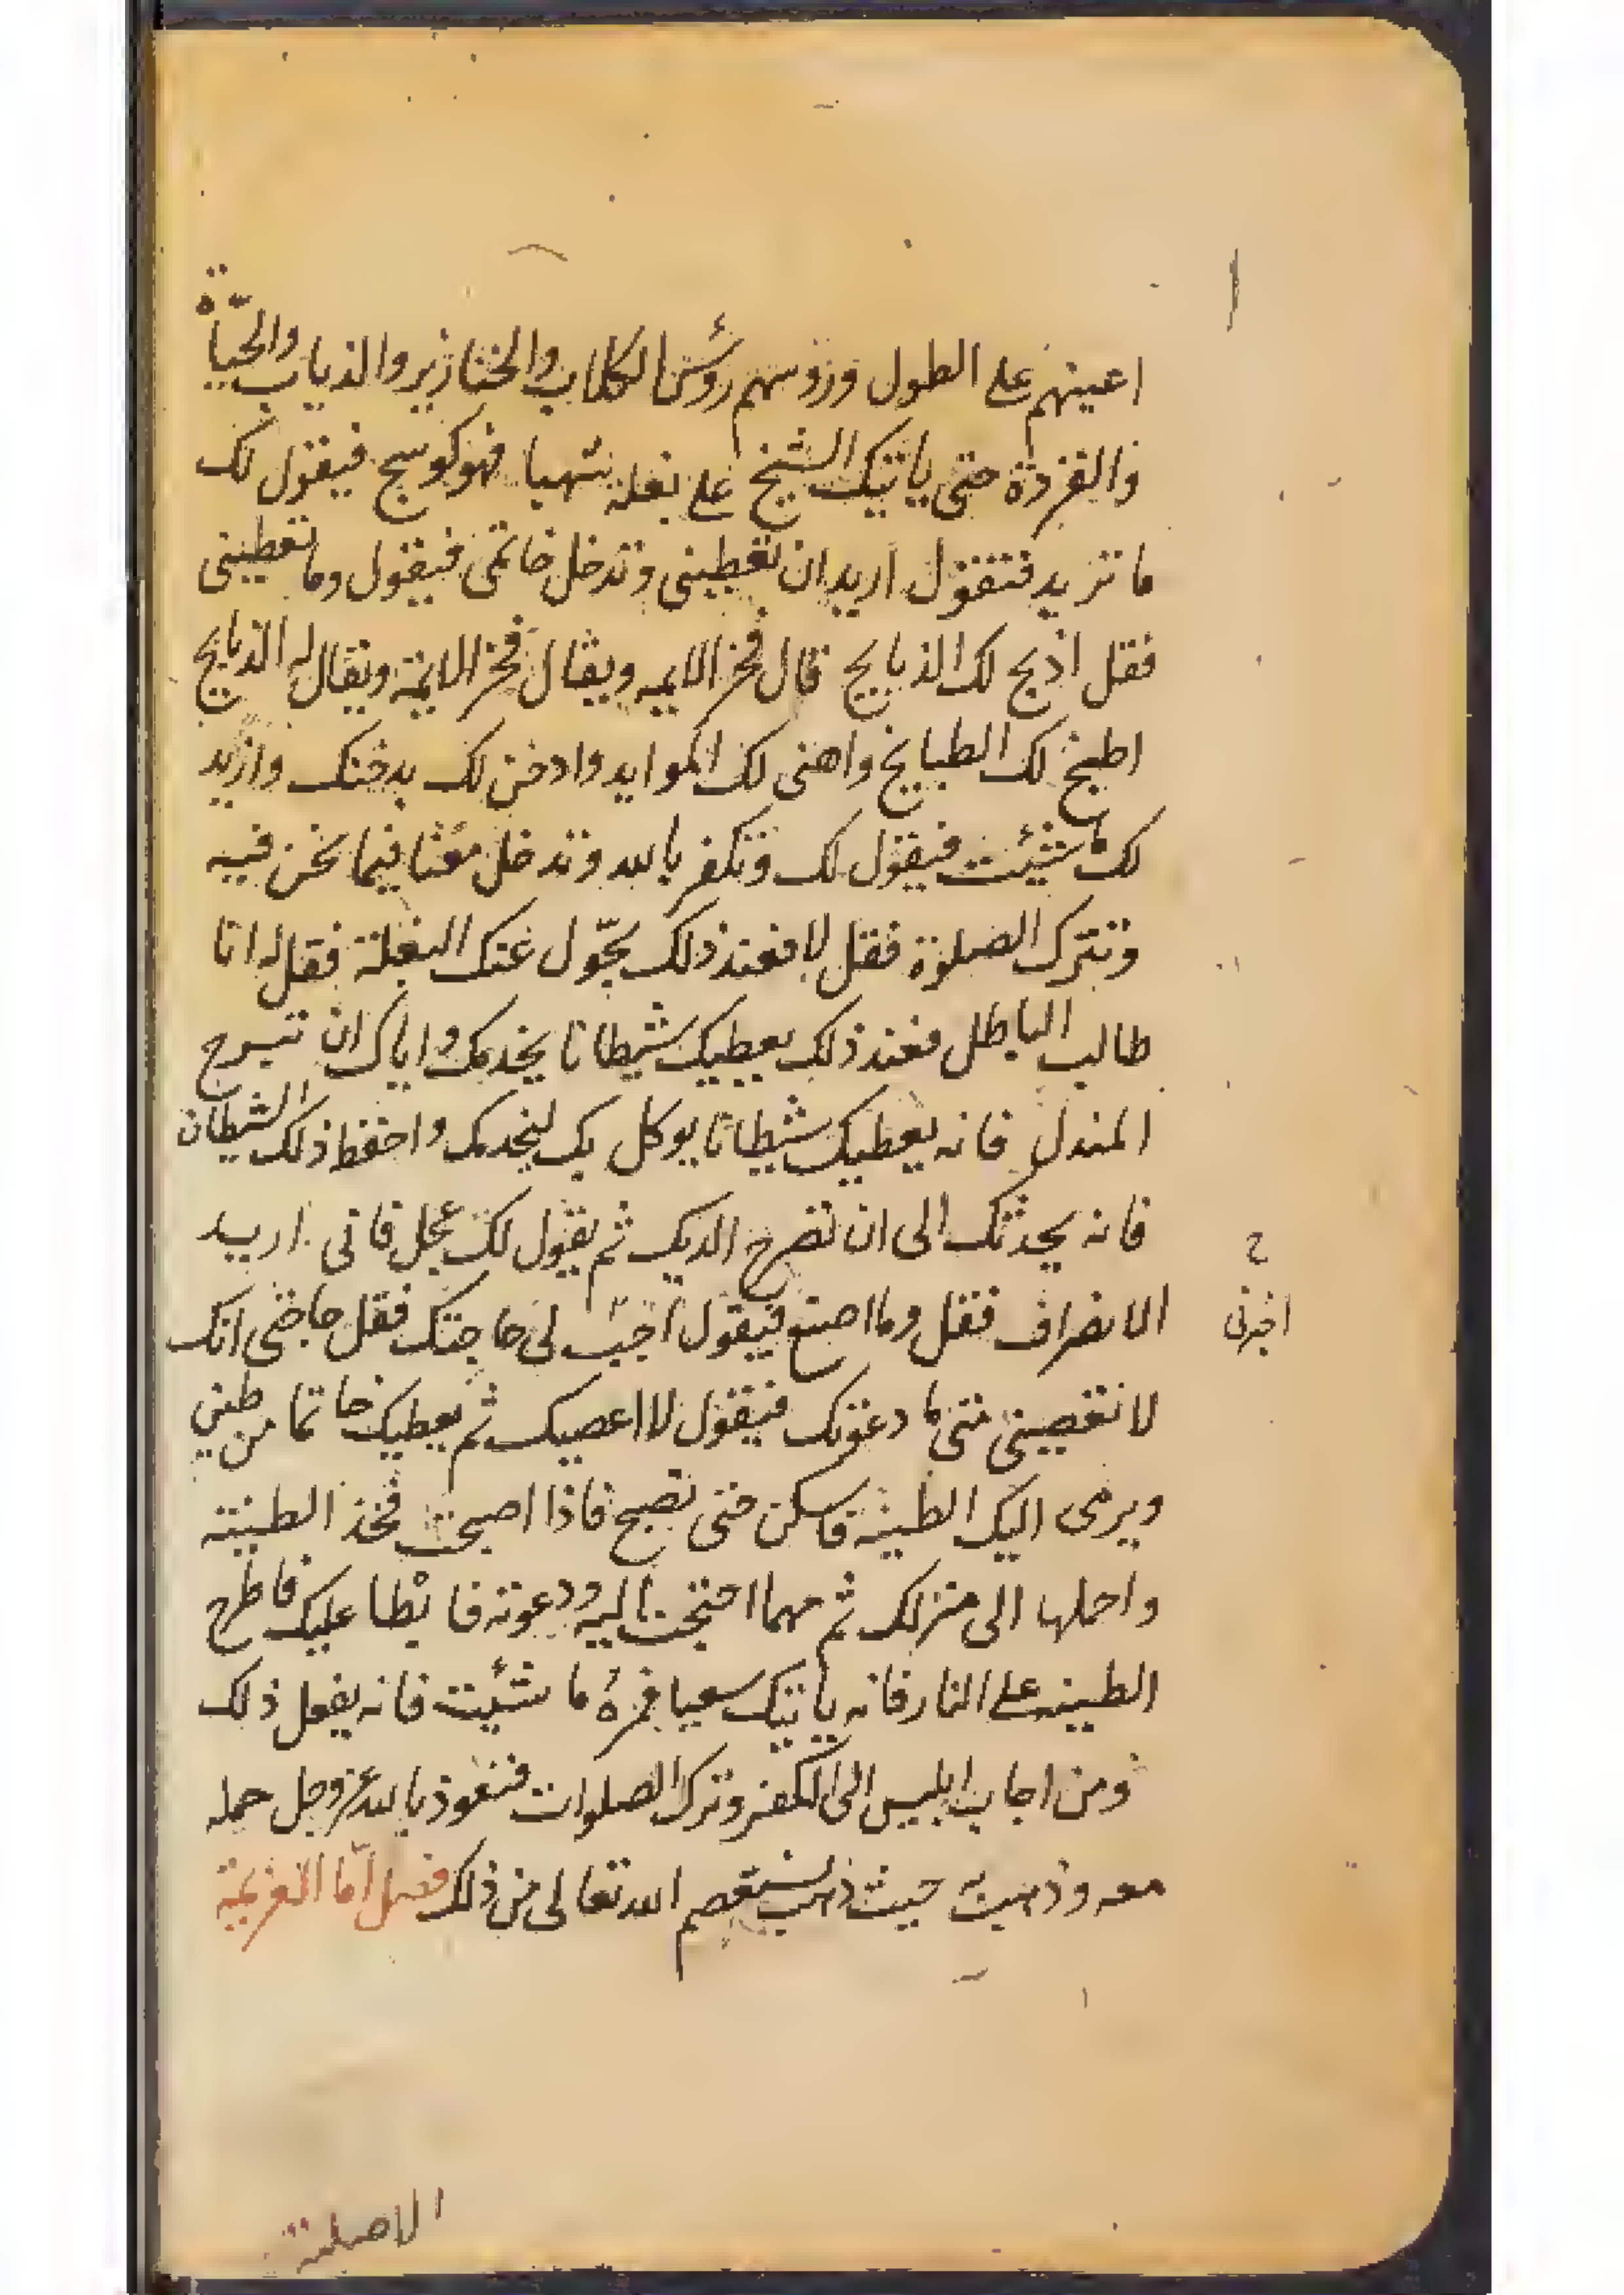 اعينهم على الطول ورؤسهم رؤس الكلاب والخنازير والذياب والحيّاة
والقردة حتى ياتيك الشيخ على بغلة شهبا فهو كوسج فيقول لك
ما تريد فتقول اريد ان تعطينى وتدخل خاتمى فيقول وما تعطينى
فقل اذبح لك الذبايح قال فخر الايمه ويقال فخر الايمة ويقال له الذبايح
اطبخ لك الطبايخ واهنى لك الموايد وادخن لك بدخنك وازيد
لك ما شئت فيقول لك وتكفر بالله وتدخل معنا فيما نحن فيه
وتترك الصلوة فقل لا فعند ذلك يحّول عنك البغلة فقل له انا
طالب الباطل فعند ذلك يعطيك شيطانا يخدمك واياك ان تبرح
المندل فانه يعطيك شيطانا يوكل بك ليخدمك واحفظ ذلك الشيطان
فانه يحدثك الى ان تصرخ الديك ثم يقول لك عجل فانى اريد
الانصراف فقل وما اصنع فيقول لى حاجتك فقل حاجتى انك
لا تعصينى متى ما دعوتك فيقول لا اعصيك ثم يعطيك خاتما من طين
ويرمى اليك الطينه فاسكن حتى تصبح فاذا اصبحت فخذ الطينته
واحلها الى منزلك ثم مهما احتجت اليه ودعوته فابطا عليك فاطرح
الطينه على النار فانه ياتيك سعيا فمرهُ ما شئت فانه يفعل ذلك
ومن اجاب ابليس الى الكفر وترك الصلوات فنعوذ بالله عز وجل حمله
معه وذهبت حيث ذهب نستعصم الله تعالى من ذلك فصل امّا العزيمة
ح
اخبرنى
الاصلية